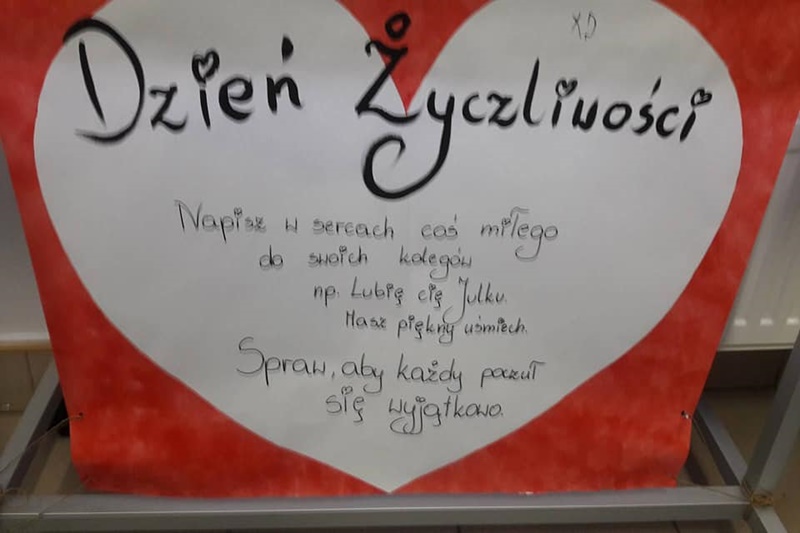 XD
Dzień Życzliwości
Napisz w sercach coś miłego
do swoich kolegów
np. Lubię cię Julku.
Masz piękny uśmiech.
Spraw, aby każdy poczuł
się wyjątkowo.